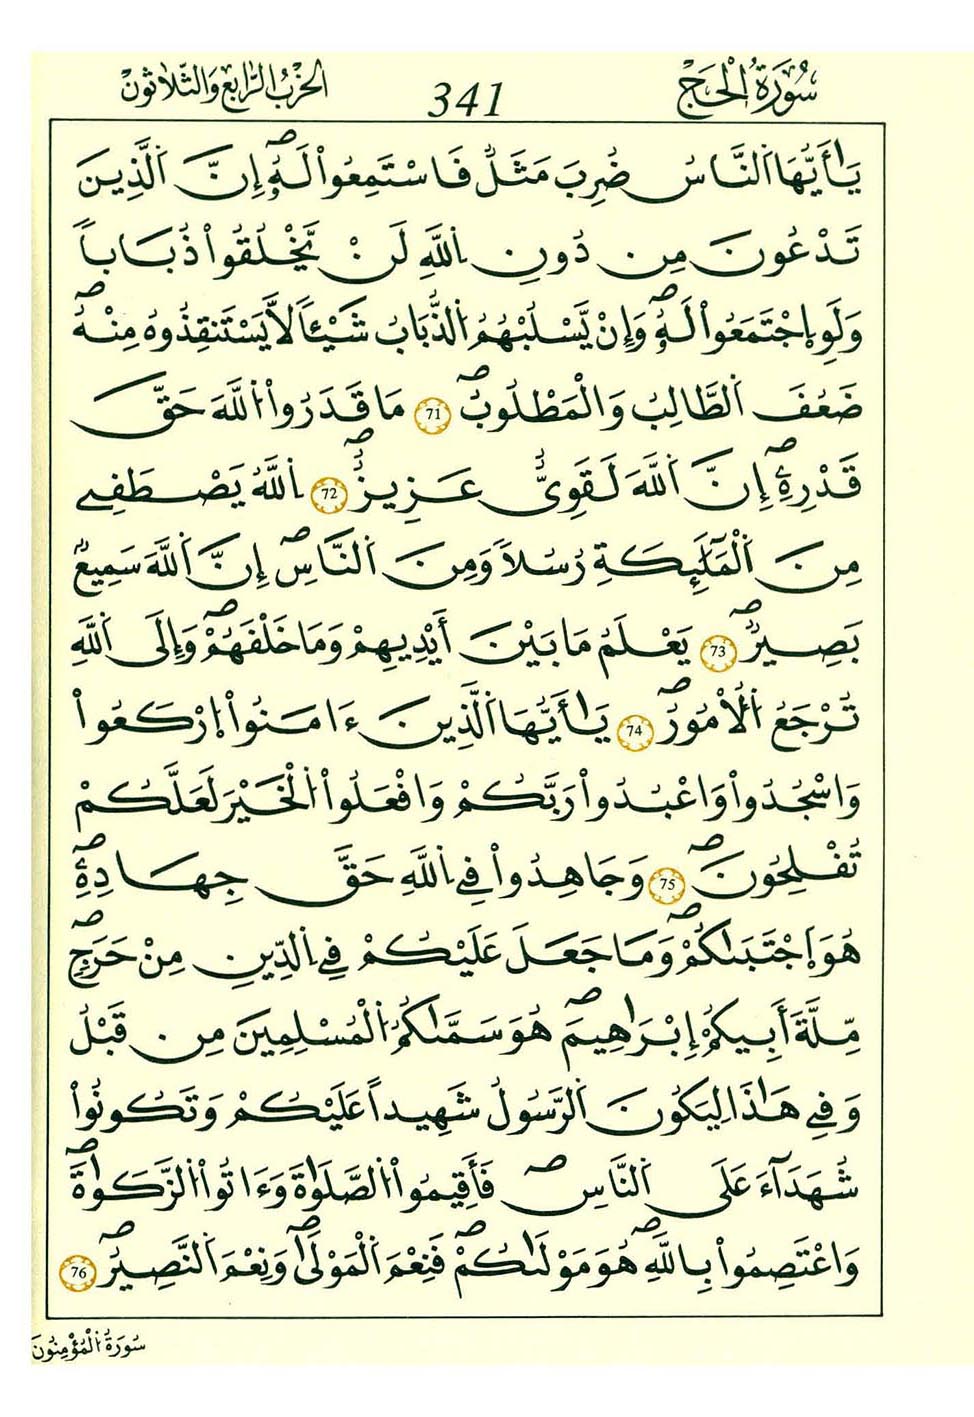 سُورَةُ الْحَجِّ
341
الحزبُ الرَّابعُ وَالثَّلَاثُونَ
يَٰأَيُّهَا اَلنَّاسُ ضُرِبَ مَثَلٞ فَاسْتَمِعُواْ لَهُۥٓۖ إِنَّ اَلَّذِينَ
تَدْعُونَ مِن دُونِ اِللَّهِ لَنْ يَّخْلُقُواْ ذُبَاباٗ
وَلَوِ اِجْتَمَعُواْ لَهُۥۖ وَإِنْ يَّسْلُبْهُمُ اُلذُّبَابُ شَيْـٔاٗ لَّا يَسْتَنقِذُوهُ مِنْهُۖ
ضَعُفَ اَلطَّالِبُ وَالْمَطْلُوبُۖ 71 مَا قَدَرُواْ اُللَّهَ حَقَّ
قَدْرِهِۦٓۖ إِنَّ اَللَّهَ لَقَوِيٌّ عَزِيزٌۖ 72 اِللَّهُ يَصْطَفِے
مِنَ اَلْمَلَٰٓئِكَةِ رُسُلاٗ وَمِنَ اَلنَّاسِۖ إِنَّ اَللَّهَ سَمِيعُۢ
بَصِيرٞۖ 73 يَعْلَمُ مَا بَيْنَ أَيْدِيهِمْ وَمَا خَلْفَهُمْۖ وَإِلَى اَللَّهِ
تُرْجَعُ اُلْأُمُورُۖ 74 يَٰأَيُّهَا اَلَّذِينَ ءَامَنُواْ اُرْكَعُواْ
وَاسْجُدُواْ وَاعْبُدُواْ رَبَّكُمْ وَافْعَلُواْ اُلْخَيْرَ لَعَلَّكُمْ
تُفْلِحُونَۖ 75 وَجَاهِدُواْ فِے اِللَّهِ حَقَّ جِهَادِهِۦۖ
هُوَ اَجْتَبَىٰكُمْۖ وَمَا جَعَلَ عَلَيْكُمْ فِے اِلدِّينِ مِنْ حَرَجٖۖ
مِّلَّةَ أَبِيكُمْ إِبْرَٰهِيمَۖ هُوَ سَمَّىٰكُمُ اُلْمُسْلِمِينَ مِن قَبْلُ
وَفِے هَٰذَا لِيَكُونَ اَلرَّسُولُ شَهِيداً عَلَيْكُمْ وَتَكُونُواْ
شُهَدَآءَ عَلَى اَلنَّاسِۖ فَأَقِيمُواْ اُلصَّلَوٰةَ وَءَاتُواْ اُلزَّكَوٰةَۖ
وَاعْتَصِمُواْ بِاللَّهِۖ هُوَ مَوْلَىٰكُمْۖ فَنِعْمَ اَلْمَوْلَىٰۖ وَنِعْمَ اَلنَّصِيرُۖ 76
سُورَةُ اُلْمُؤْمِنُونَ